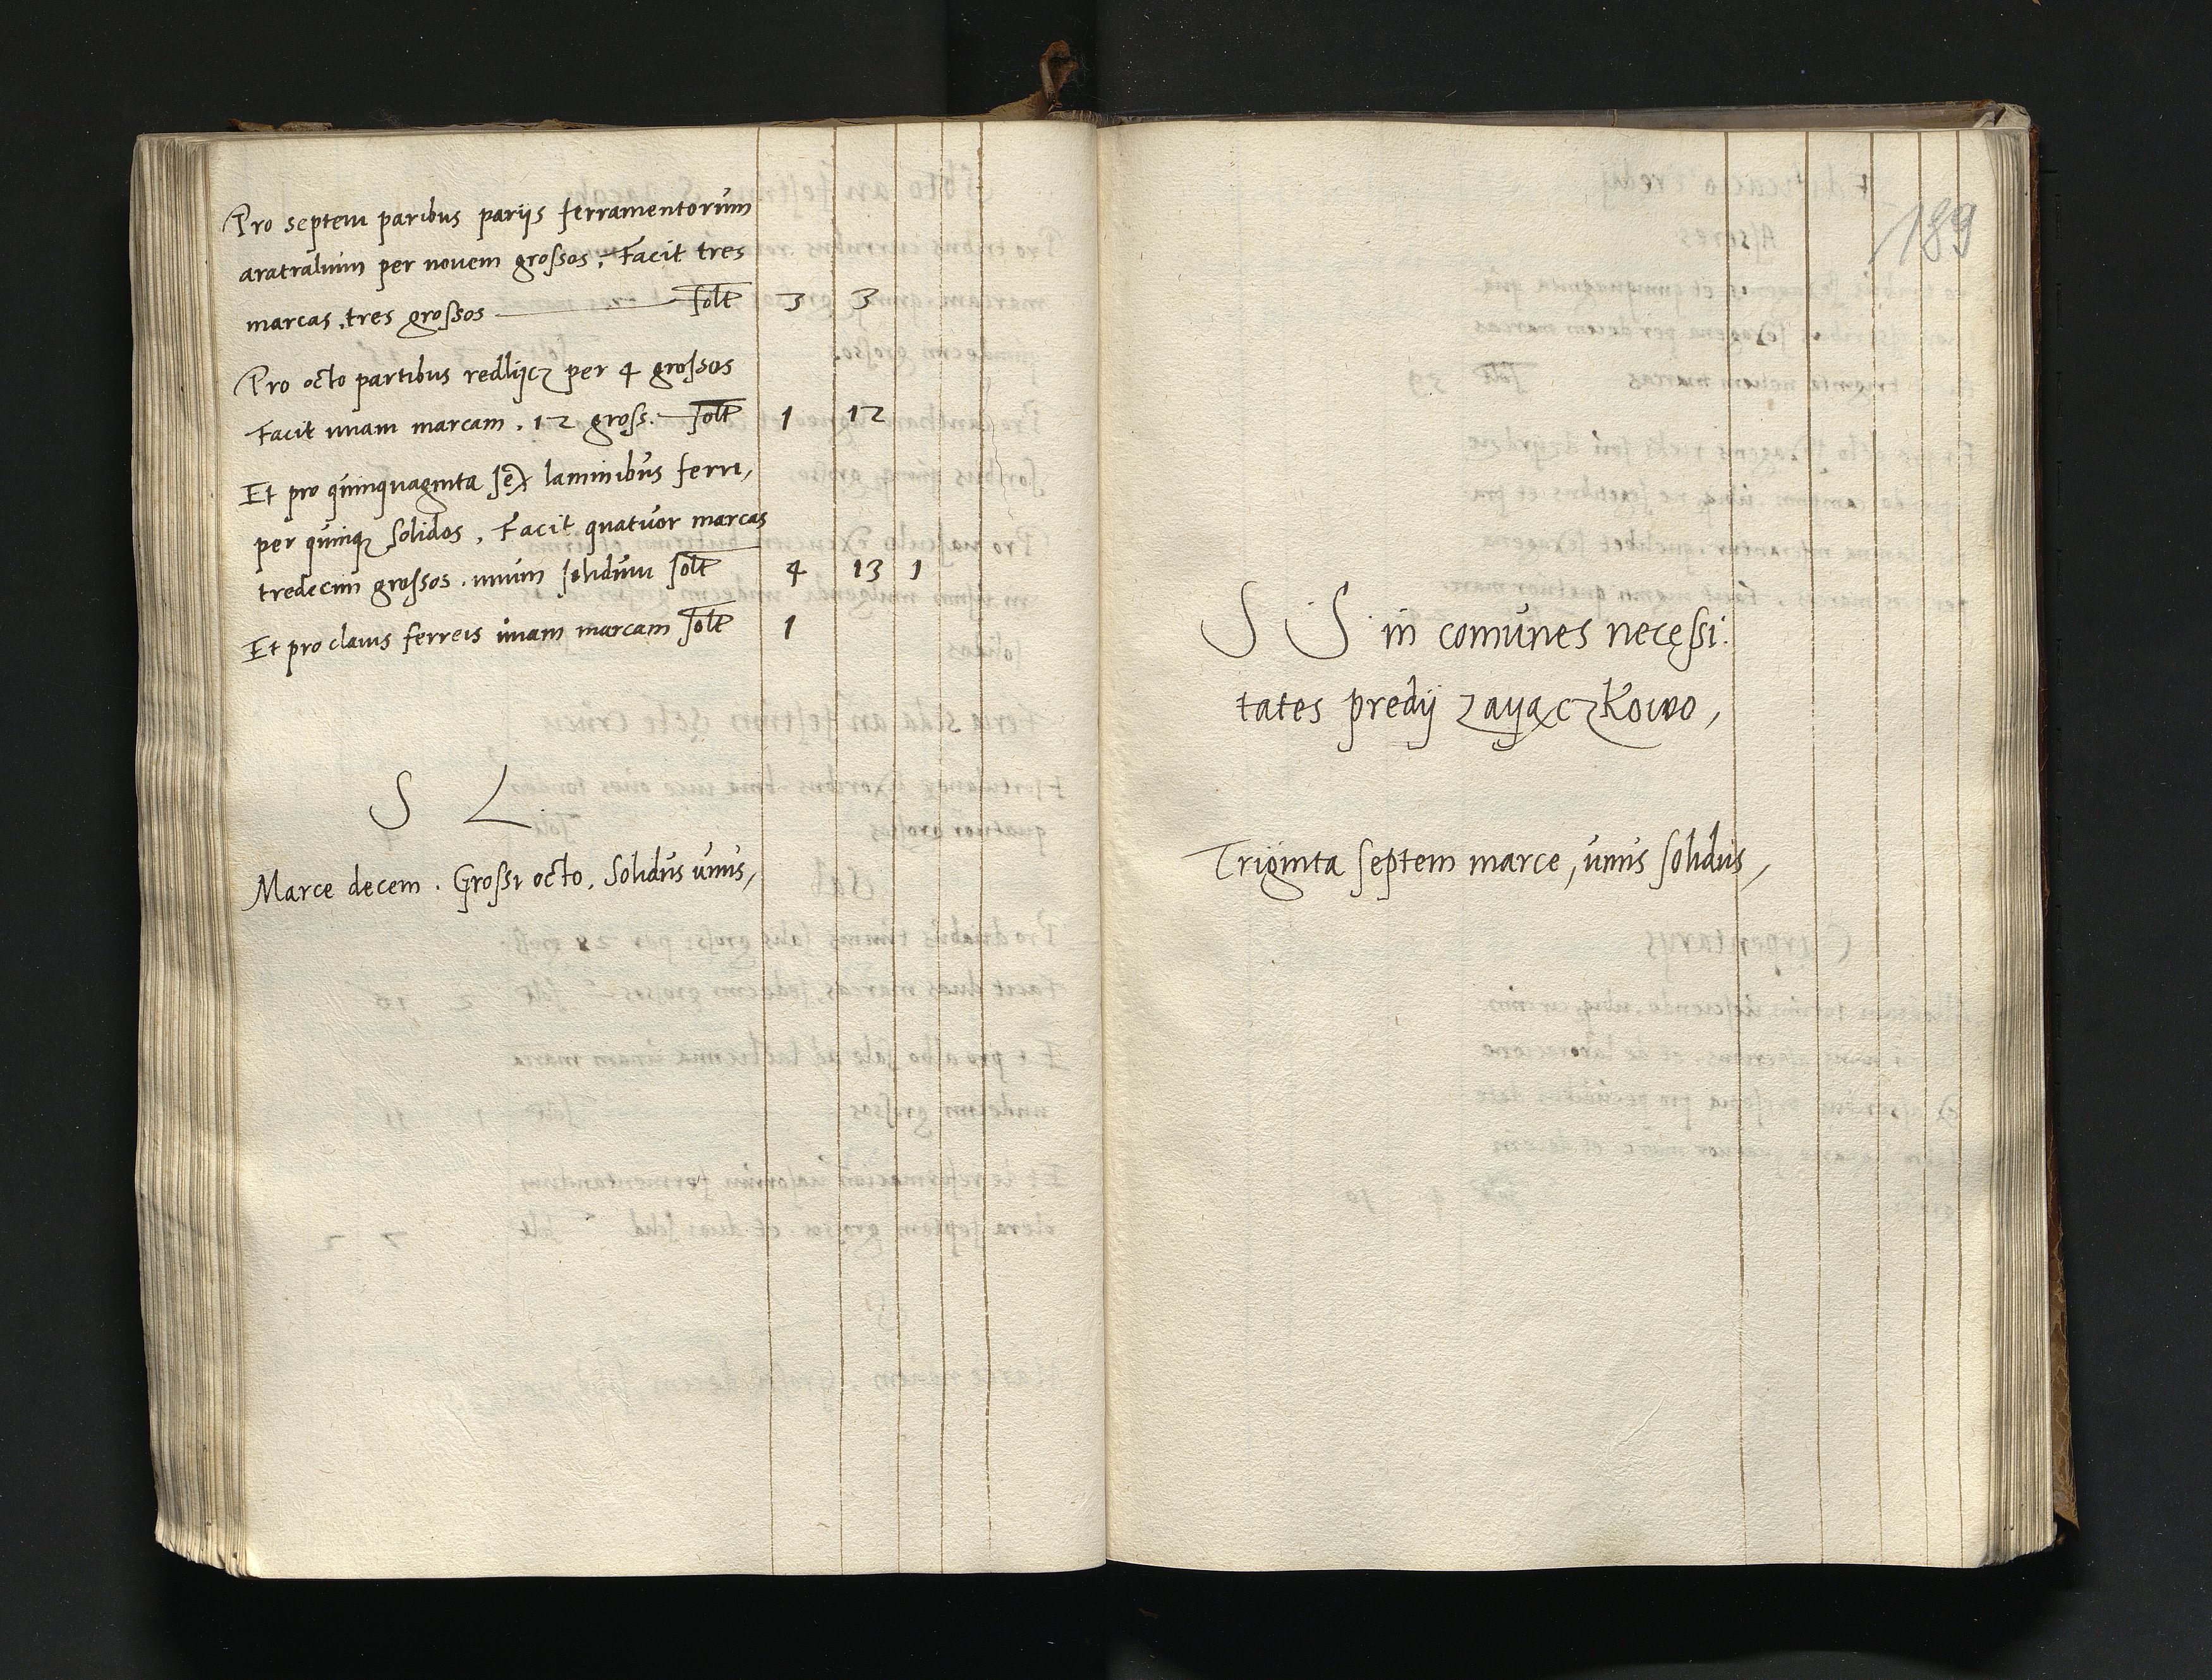 Pro septem paribus parijs ferramentorum
aratralium per novem grossos, Facit tres
marcas, tres grossos — solt 3 3
Pro octo partibus redlijcz per 4 grossos
Facit unam marcam, 12 gross. solt 1 12
Et pro quinquaginta sex laminibus ferri,
per quinq solidos, Facit quatuor marcas
tredecim grossos, unum solidum solt 4 13 1
Et pro clavis ferreis unam marcam solt 1
S L
Marce decem. Grossi octo, Solidus unus,
189
S S in comunes necessi:
tates predij Zayączkowo,
Triginta septem marce, unus solidus,